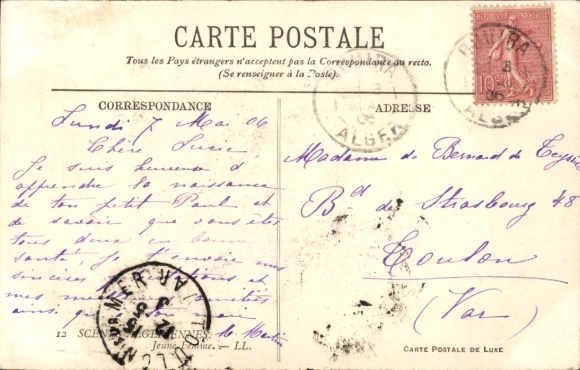 CARTE POSTALE
Tous les Pays étrangers n'acceptent pas la Correspondance au recto.
(Se renseigner à la Poste).
CORRESPONDANCE
Lundi 7 Mai 06
Chère Lucie,
Je suis heureux d
apprendre la naissance
de ton petit Paul et
de savoir que vous êtes
tous deux en bonne
santé. Je t'envoie mes
sincères et
mes
ainsi qu
de Martin
12 SCÈNES ALGÉRIENNES
Jeune Femme. - LL.
ADRESSE
Madame de Bernard de Teyssier
Bd de Strasbourg 48
Toulon
(Var)
CARTE POSTALE DE LUXE
REPUBLIQUE FRANÇAISE
10
BOUIRA
8
06
ALGER
BOUIRA
8
06
ALGER
TOULON SUR MER VAR
12
5